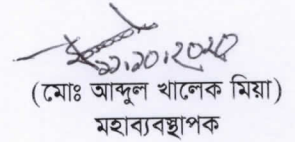 (মোঃ আব্দুল খালেক মিয়া)
মহাব্যবস্থাপক